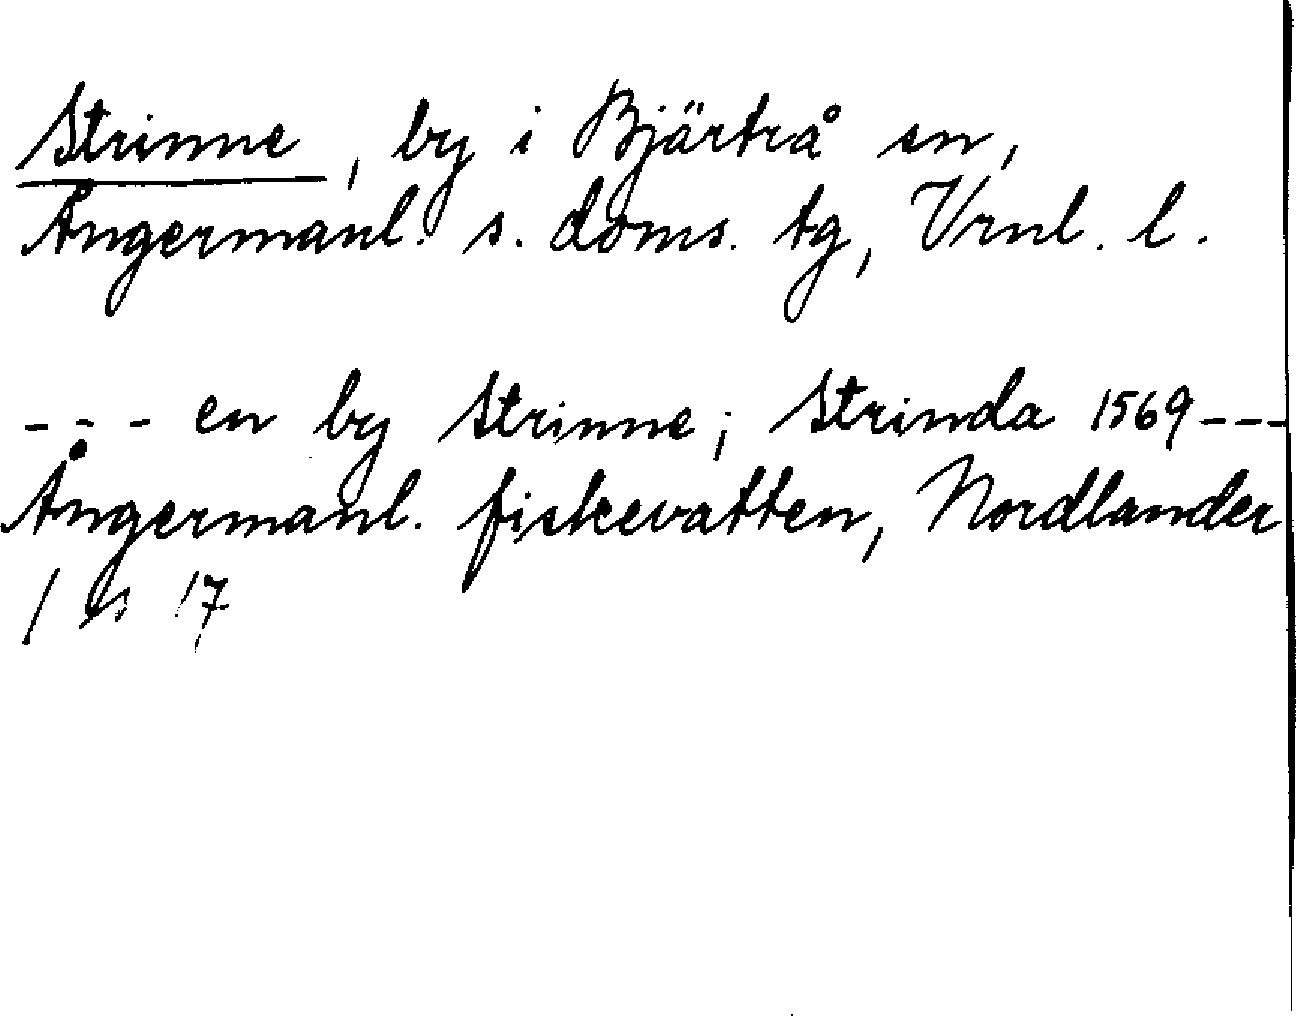 Strinne, by i Bjärtrå sn,
Ångermanl. s. doms. tg, Vrnl. l.
--- en by Strinne; Strinda 1569---
Ångermanl. fiskevatten, Nordlander
/ s 17